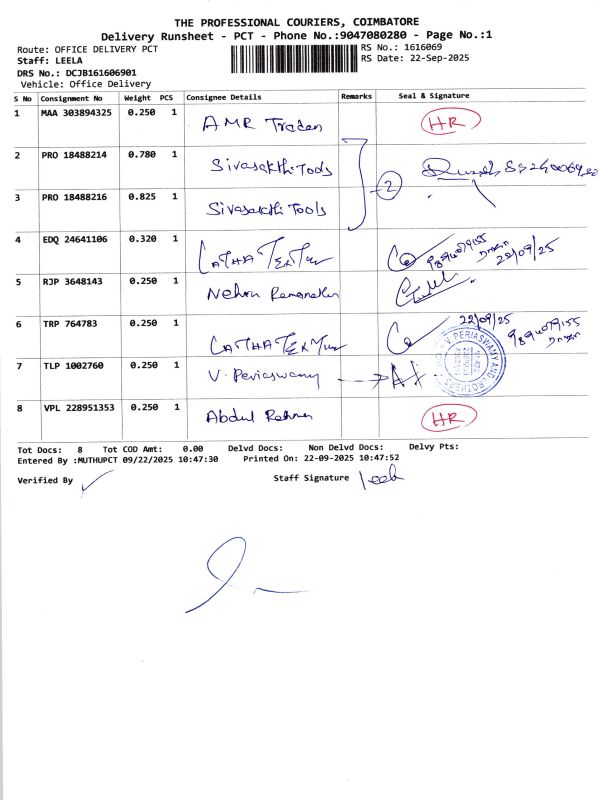 THE PROFESSIONAL COURIERS, COIMBATORE
Delivery Runsheet - PCT - Phone No.:9047080280 - Page No.:1
Route: OFFICE DELIVERY PCT
RS No.: 1616069
Staff: LEELA
RS Date: 22-Sep-2025
DRS No.: DCJB161606901
Vehicle: Office Delivery
S No Consignment No Weight PCS Consignee Details Remarks Seal & Signature
1 MAA 303894325 0.250 1 AMR Traders HR
2 PRO 18488214 0.780 1 Sivasakthi Tools
2
3 PRO 18488216 0.825 1 Sivasakthi Tools
4 EDQ 24641106 0.320 1 22/09/25
5 RJP 3648143 0.250 1 Nehru
6 TRP 764783 0.250 1 22/09/25
7 TLP 1002760 0.250 1 V. Periaswamy
V. PERIASWAMY AND
8 VPL 228951353 0.250 1 Abdul Rahman HR
Tot Docs: 8 Tot COD Amt: 0.00 Delvd Docs: Non Delvd Docs: Delvy Pts:
Entered By :MUTHUPCT 09/22/2025 10:47:30 Printed On: 22-09-2025 10:47:52
Verified By Staff Signature Leela